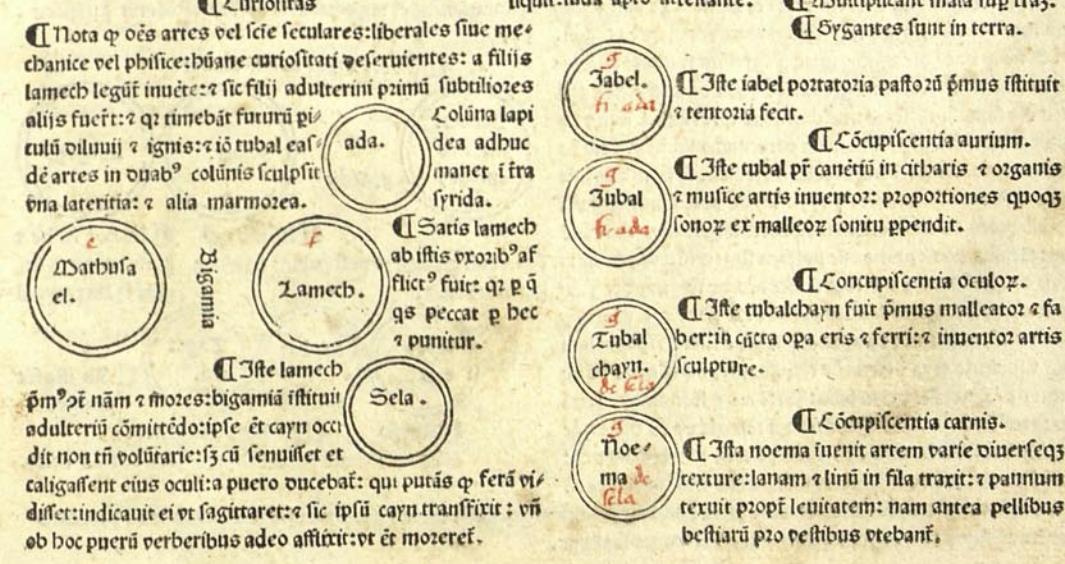 ¶ Curiositas
¶ Nota ꝙ oēs artes vel sciē seculares:liberales siue me⸗
chanice vel phisice:hūane curiositati deseruientes: a filijs
lamech legūt̄ inuēte:⁊ sic filij adulterini primū subtiliores
alijs fuer̄t:⁊ qꝛ timebāt futurū ꝑi⸗
culū diluuij ⁊ ignis:⁊ iō tubal eas⸗
dē artes in duabꝰ colūnis sculpsit
vna lateritia: ⁊ alia marmorea.
ada.
Colūna lapi
dea adhuc
manet ī t̄ra
syrida.
e
Mathusa
el.
Bigamia
f
Lamech.
¶ Satis lamech
ab istis vxoribꝰ af
flictꝰ fuit: qꝛ ꝑ q̄
qs peccat ꝑ hec
⁊ punitur.
¶ Iste lamech
p̄mꝰ ꝯt̄ nām ⁊ mores:bigamiā īstituit
adulteriū cōmittēdo:ipse ēt cayn occi
dit non tn̄ volūtarie:sꝫ cū senuisset et
caligassent eius oculi:a puero ducebat̄: qui putās ꝙ ferā vi⸗
disset:indicauit ei vt sagittaret:⁊ sic ipsū cayn transfixit : vn̄
ob hoc puerū verberibus adeo afflixit:vt ēt moreret̄.
Sela .
¶ Multiplicant mala suꝑ
¶ Gygantes sunt in terra.
g
Iabel.
fi ada
¶ Iste iabel portatoria pastorū p̄mus īstituit
⁊ tentoria fecit.
¶ Cōcupiscentia aurium.
g
Iubal
fi ada
¶ Iste tubal pr̄ canētiū in citharis ⁊ organis
⁊ musice artis inuentor: proportiones quoqꝫ
sonoꝝ ex malleoꝝ sonitu ꝑpendit.
¶ Concupiscentia oculoꝝ.
g
Tubal
chayn.
de sela
¶ Iste tubalchayn fuit p̄mus malleator ⁊ fa
ber:in cūcta oꝑa eris ⁊ ferri:⁊ inuentor artis
sculpture.
¶ Cōcupiscentia carnis.
g
Noe⸗
ma de
sela
¶ Ista noema īuenit artem varie diuerseqꝫ
texture:lanam ⁊ linū in fila traxit:⁊ pannum
texuit propt̄ leuitatem: nam antea pellibus
bestiarū pro vestibus vtebant̄.